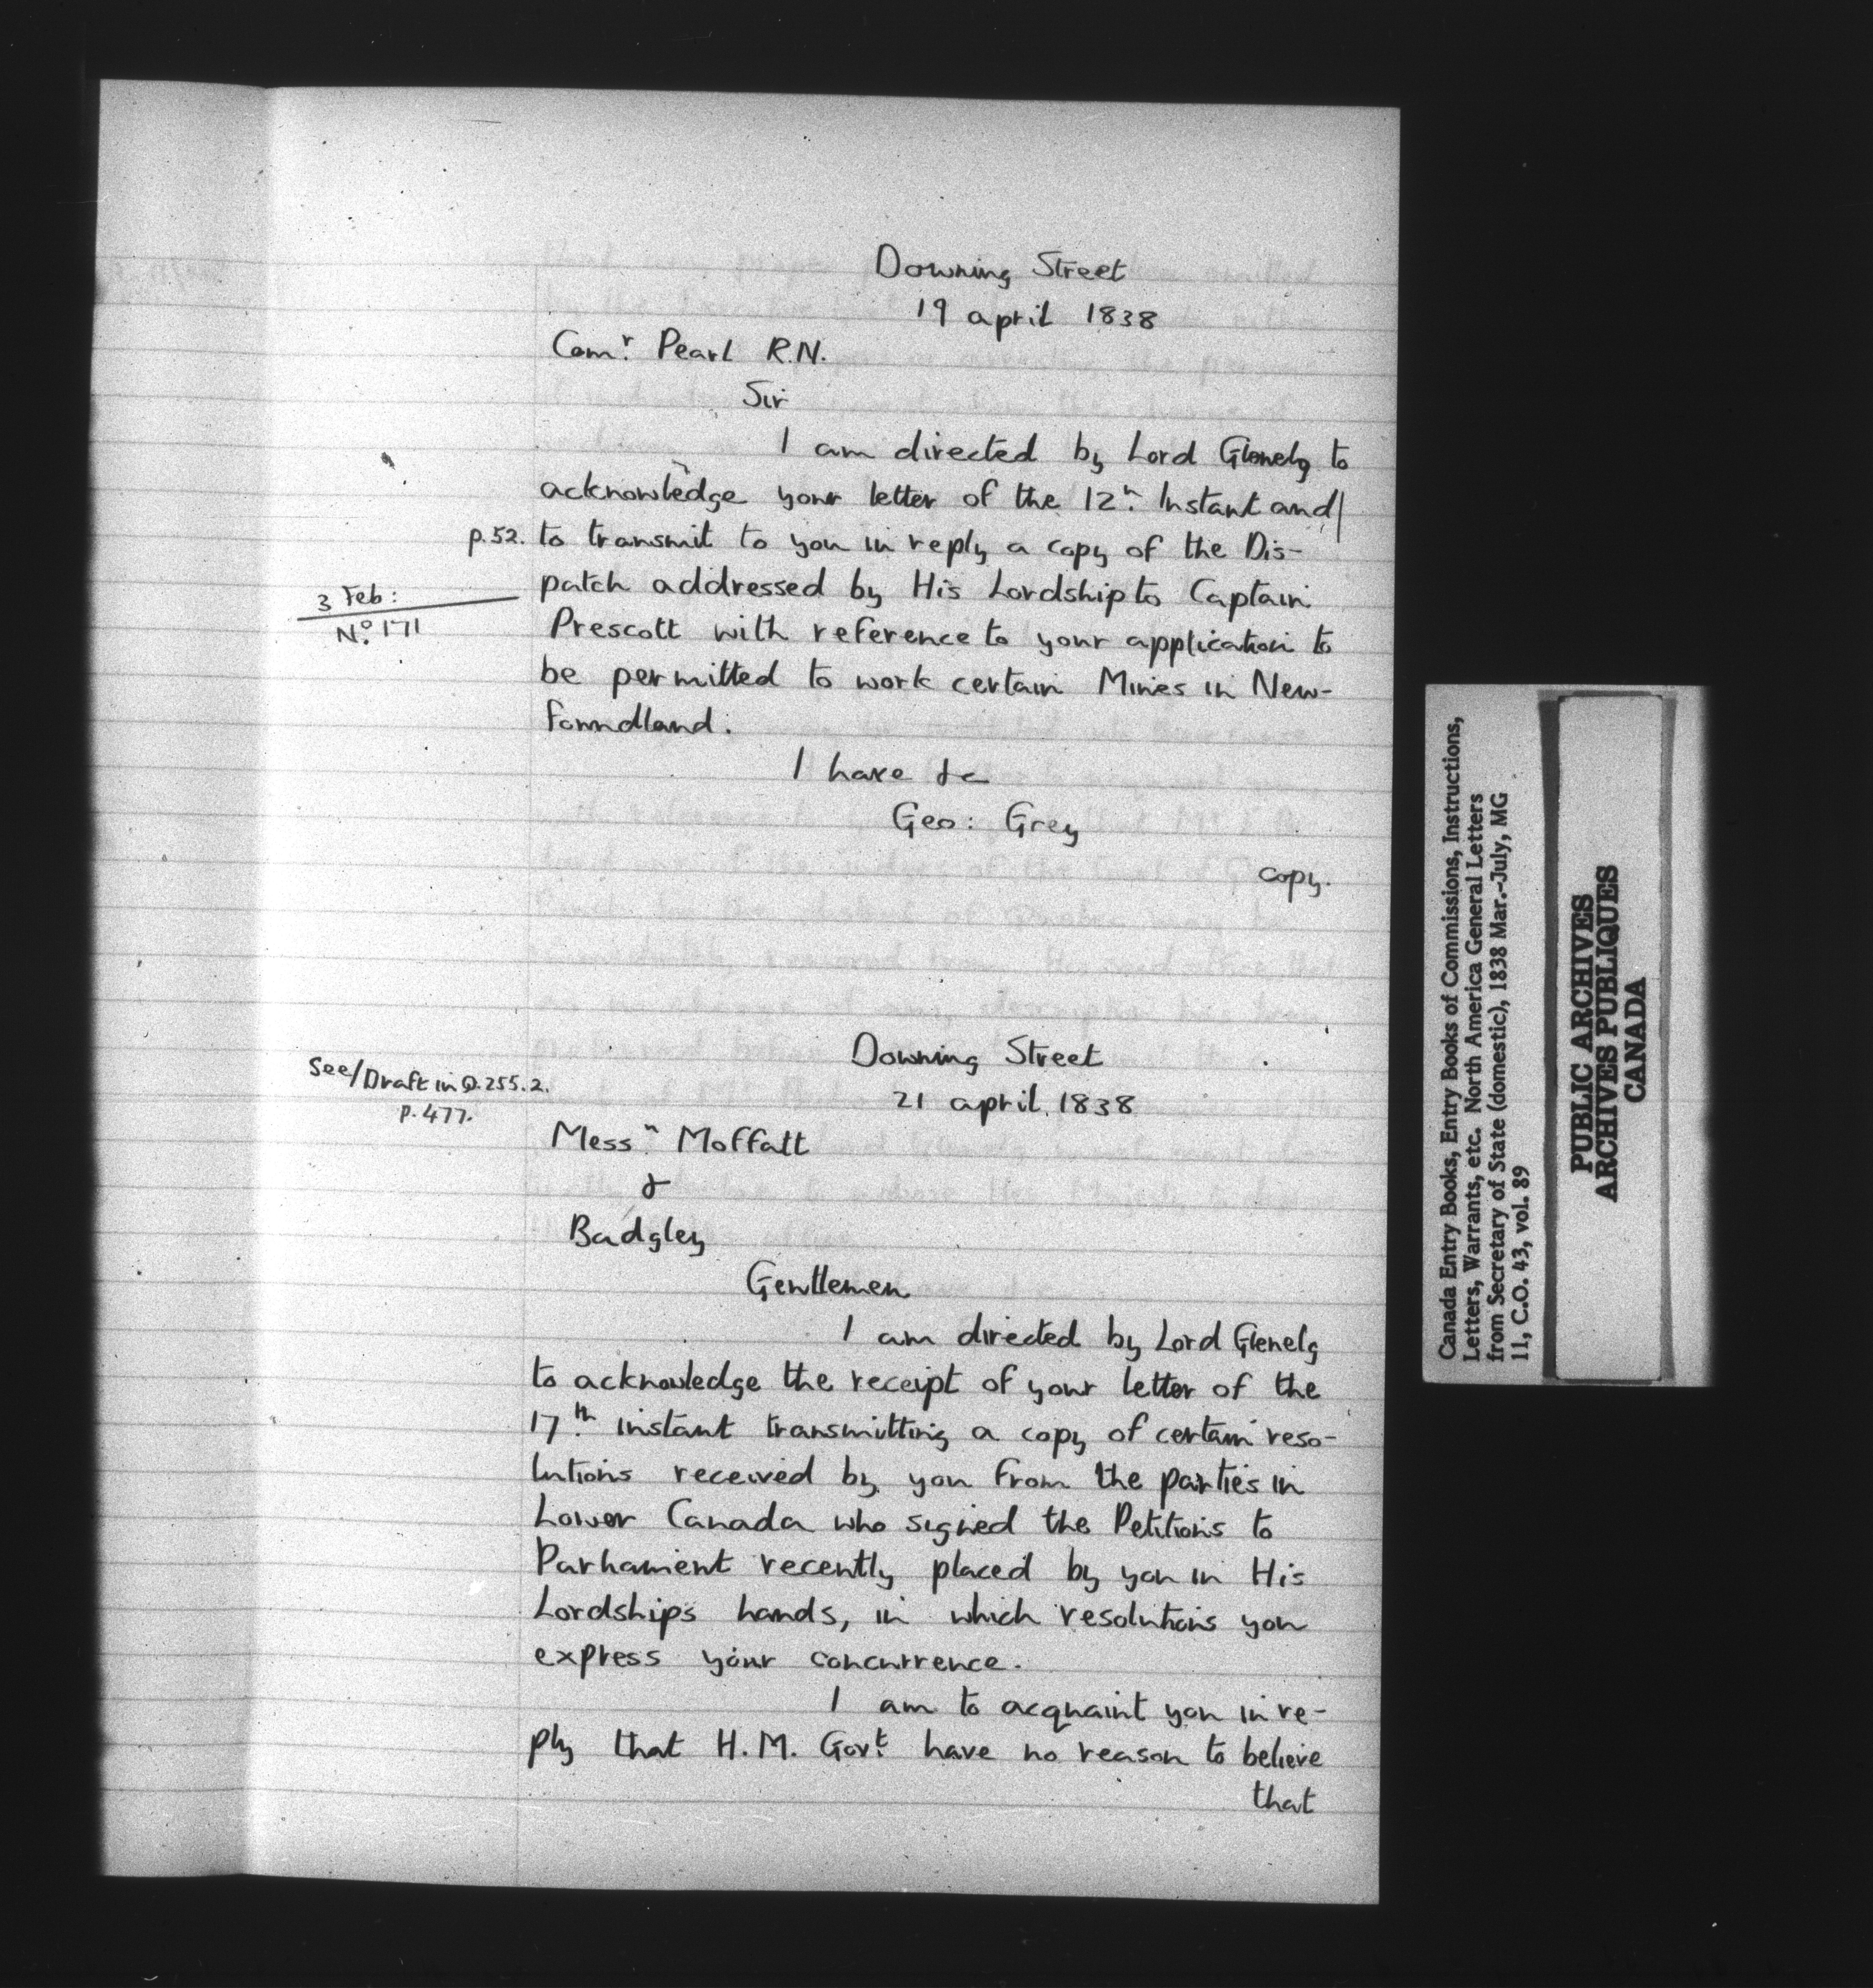 Downing Street
19 april 1838
Com.r Pearl R.N.
Sir
I am directed by Lord Glenelg to
acknowledge your letter of the 12.h Instant and
p.52. to transmit to you in reply a copy of the Dis-
3 Feb:
No. 171
patch addressed by His Lordship to Captain
Prescott with reference to your application to
be permitted to work certain Mines in New-
foundland.
I have &c
Geo: Grey
copy.
Downing Street
See/Draft in Q.255.2.
p.477.
21 april 1838
Mess.rs Moffatt
&
Badgley
Gentlemen
I am directed by Lord Glenelg
to acknowledge the receipt of your letter of the
17.th instant transmitting a copy of certain reso-
lutions received by you from the parties in
Lower Canada who signed the Petitions to
Parliament recently placed by you in His
Lordships hands, in which resolutions you
express your concurrence.
I am to acquaint you in re-
ply that H.M. Gov.t have no reason to believe
that
Canada Entry Books, Entry Books of Commissions, Instructions,
Letters, Warrants, etc. North America General Letters
from Secretary of State (domestic), 1838 Mar.-July, MG
11, C.O. 43, vol. 89
PUBLIC ARCHIVES
ARCHIVES PUBLIQUES
CANADA